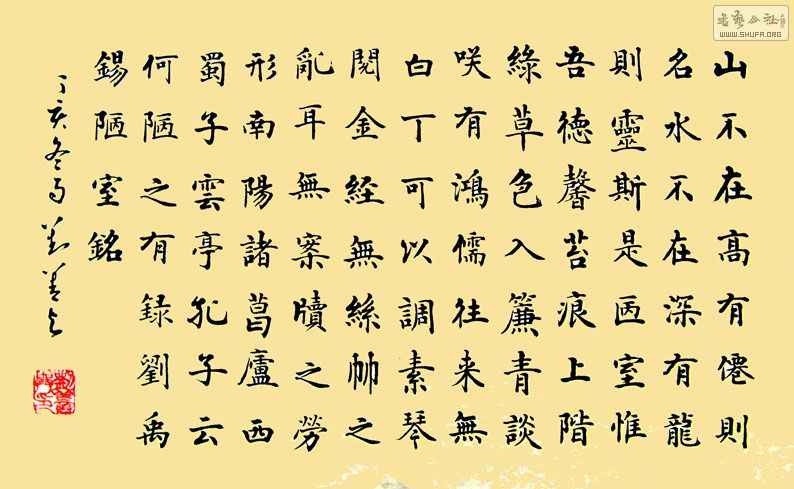 山不在高有僊則
名水不在深有龍
則靈斯是㔷室惟
吾德馨苔痕上階
綠草色入簾青談
咲有鴻儒往来無
白丁可以調素琴
閱金經無絲竹之
亂耳無案牘之勞
形南陽諸葛廬西
蜀子雲亭孔子云
何陋之有録劉禹
錫陋室銘
丁亥冬月
書藝公社
WWW.SHUFA.ORG